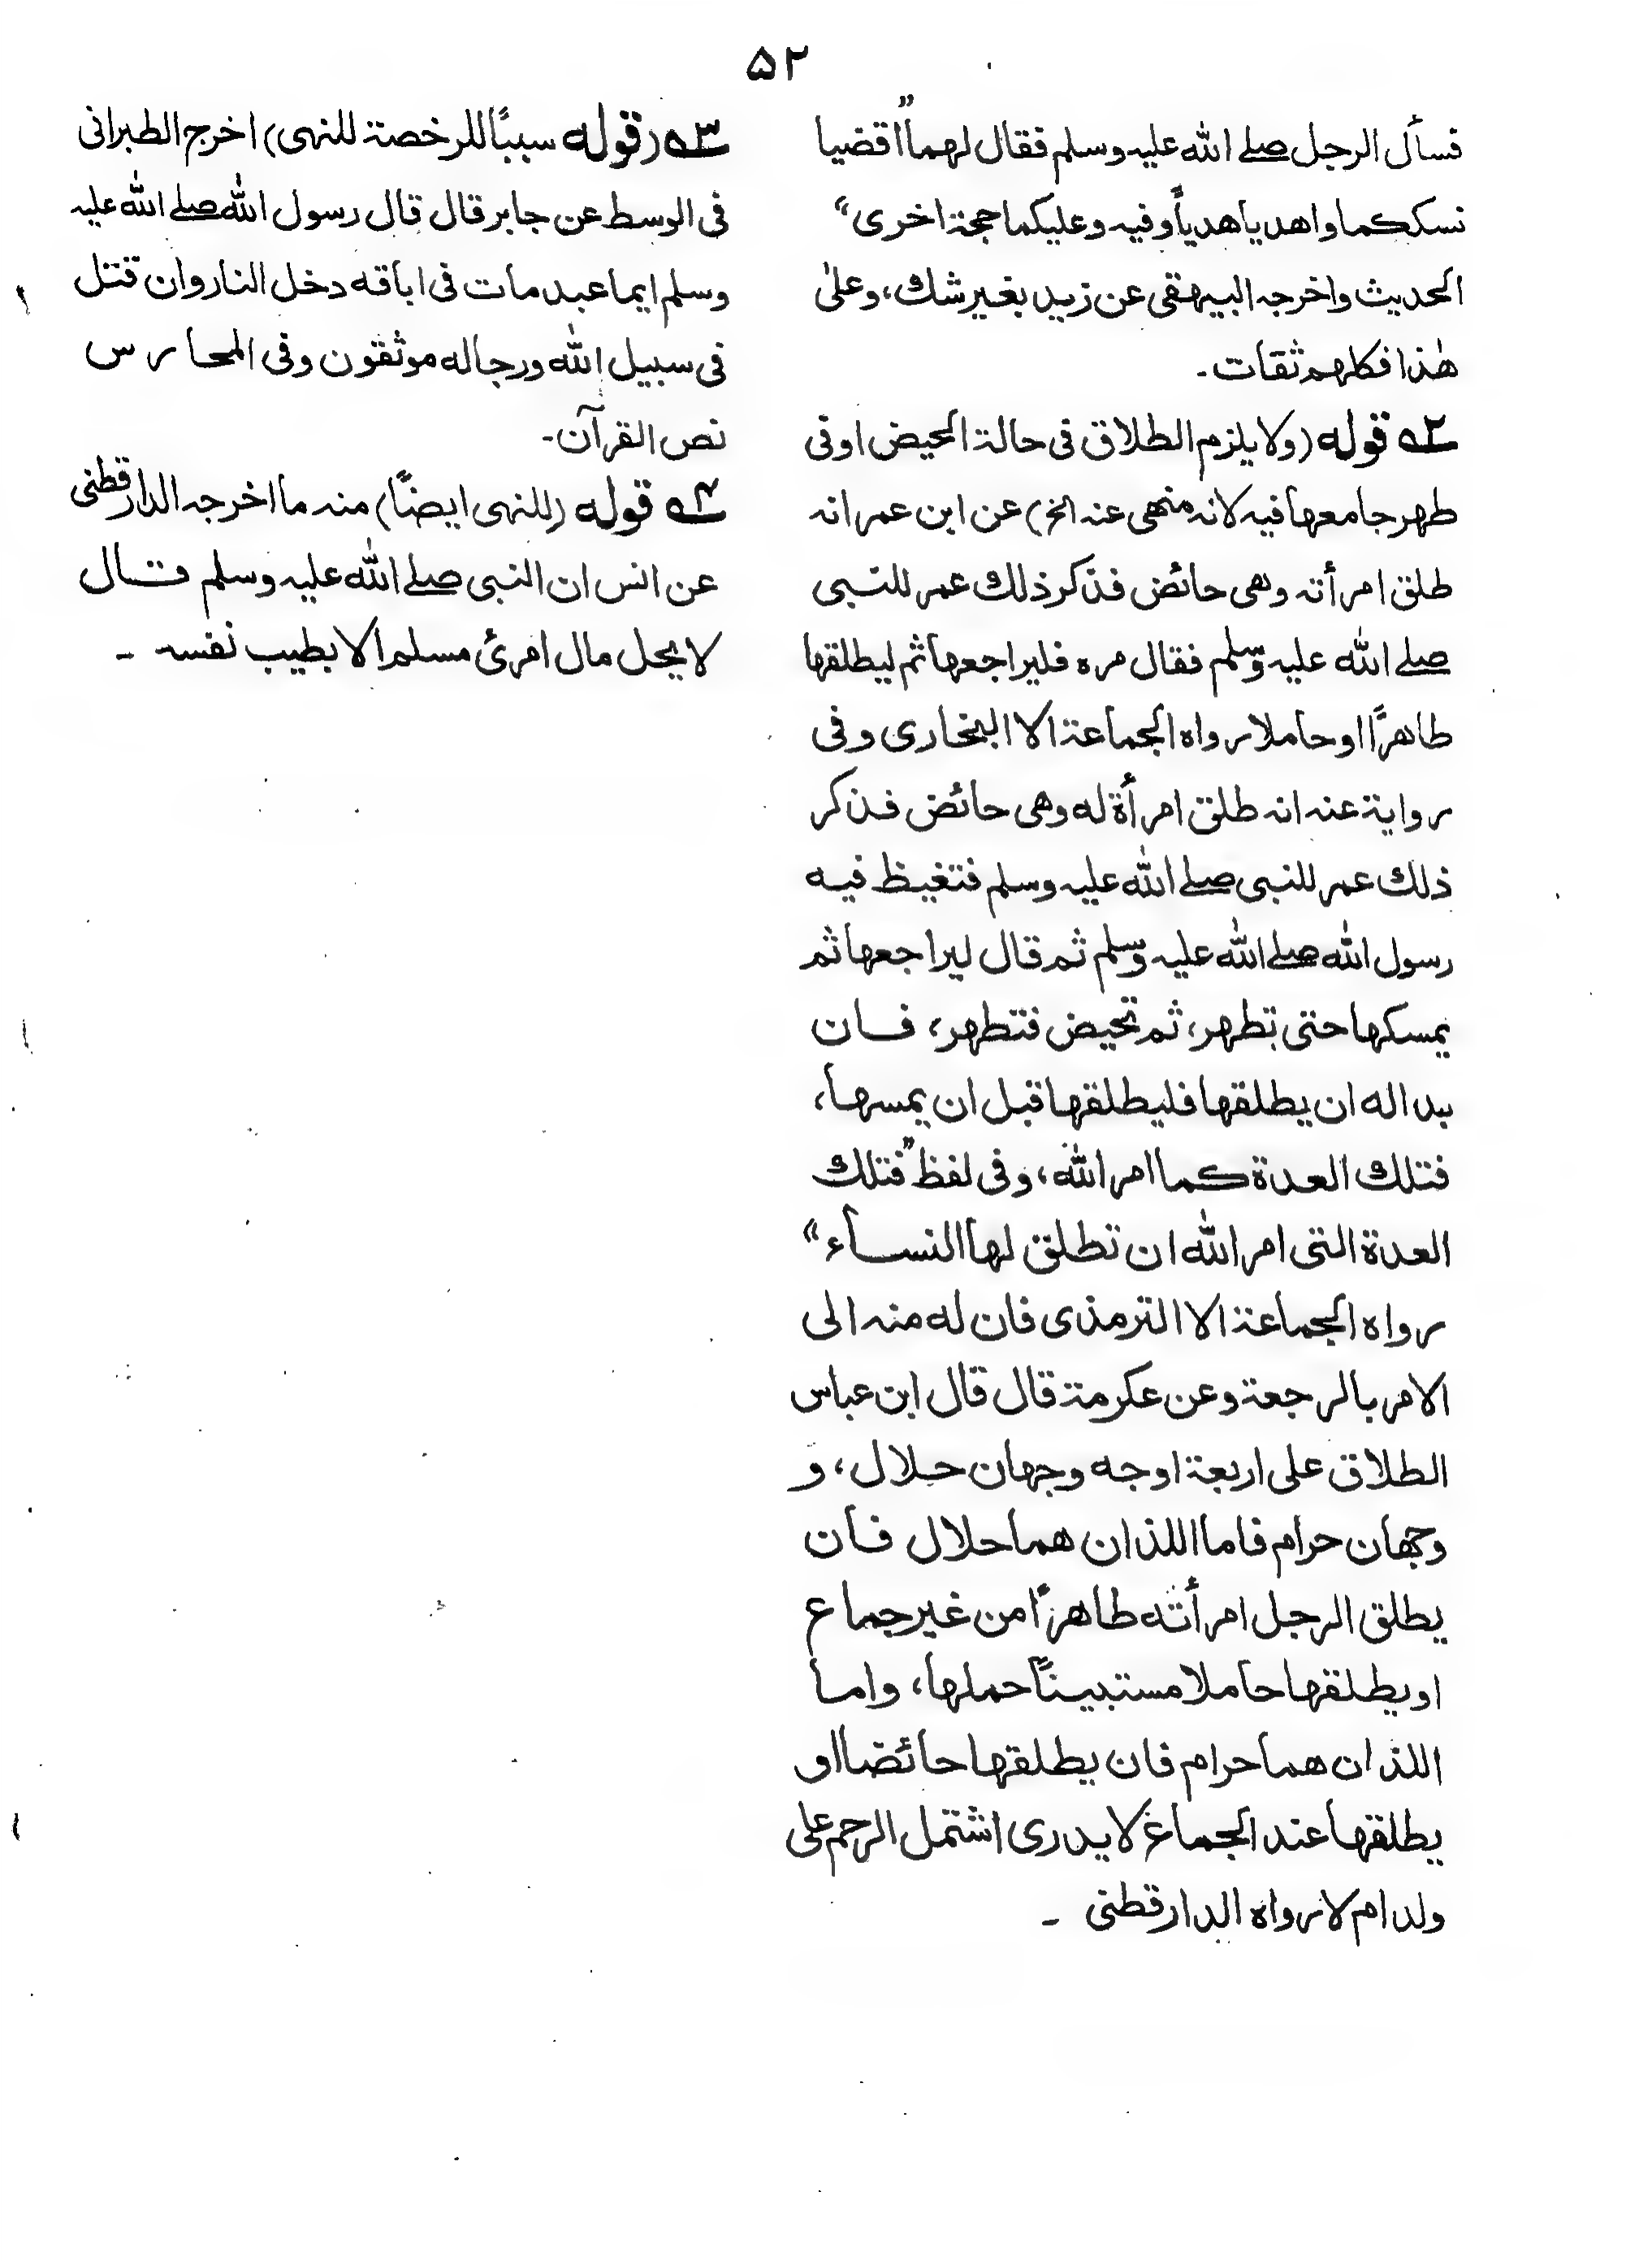 ۵۲
فسأل الرجل صلے اللہ علیہ وسلم فقال لهما "اقضیا
نسککما واهدیا هدیاً وفیہ وعلیکما حجۃ اخری"
الحدیث واخرجہ البیہقی عن زید بغیر شك، وعلیٰ
هٰذا فکلهم ثقات۔
۵۲ قوله (ولا یلزم الطلاق فی حالۃ الحیض اوفی
طهر جامعها فیہ لانہ منهی عنہ الخ) عن ابن عمر انہ
طلق امرأتہ وهی حائض فذکر ذلك عمر للنبی
صلے اللہ علیہ وسلم فقال مرہ فلیراجعها ثم لیطلقها
طاهرًا او حاملا رواہ الجماعۃ الا البخاری وفی
روایۃ عنہ انہ طلق امرأۃ له وهی حائض فذکر
ذلك عمر للنبی صلے اللہ علیہ وسلم فتغیظ فیه
رسول اللہ صلے اللہ علیہ وسلم ثم قال لیراجعها ثم
یمسکها حتی تطهر، ثم تحیض فتطهر، فان
بدا له ان یطلقها فلیطلقها قبل ان یمسها،
فتلك العدۃ کما امر اللہ، وفی لفظ "فتلك
العدۃ التی امر اللہ ان تطلق لها النساء"
رواہ الجماعۃ الا الترمذی فان له منہ الی
الامر بالرجعۃ وعن عکرمۃ قال قال ابن عباس
الطلاق علی اربعۃ اوجه وجهان حلال، و
وجهان حرام فاما اللذان هما حلال فان
یطلق الرجل امرأته طاهرًا من غیر جماع
او یطلقها حاملا مستبیناً حملها، واما
اللذان هما حرام فان یطلقها حائضا او
یطلقها عند الجماع لا یدری اشتمل الرحم علی
ولد ام لا رواہ الدارقطنی ۔
۵۳ (قوله سببًا للرخصۃ للنهی) اخرج الطبرانی
فی الوسط عن جابر قال قال رسول اللہ صلے اللہ علیہ
وسلم ایما عبد مات فی اباقه دخل النار وان قتل
فی سبیل اللہ ورجاله موثقون وفی المحارس
نص القرآن۔
۵۴ قوله (للنهی ایضاً) منہ ما اخرجہ الدارقطنی
عن انس ان النبی صلے اللہ علیہ وسلم قال
لا یحل مال امرئ مسلم الا بطیب نفسہ ۔